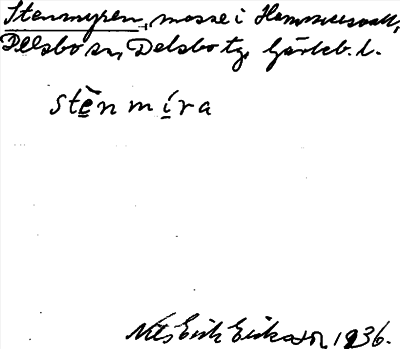 Stenmyren, mosse i Hammarsvall,
Delsbo sn, Delsbo tg, Gävleb. l.
stè̱n mí̱ra
Nils Erik Eriksson 1936.